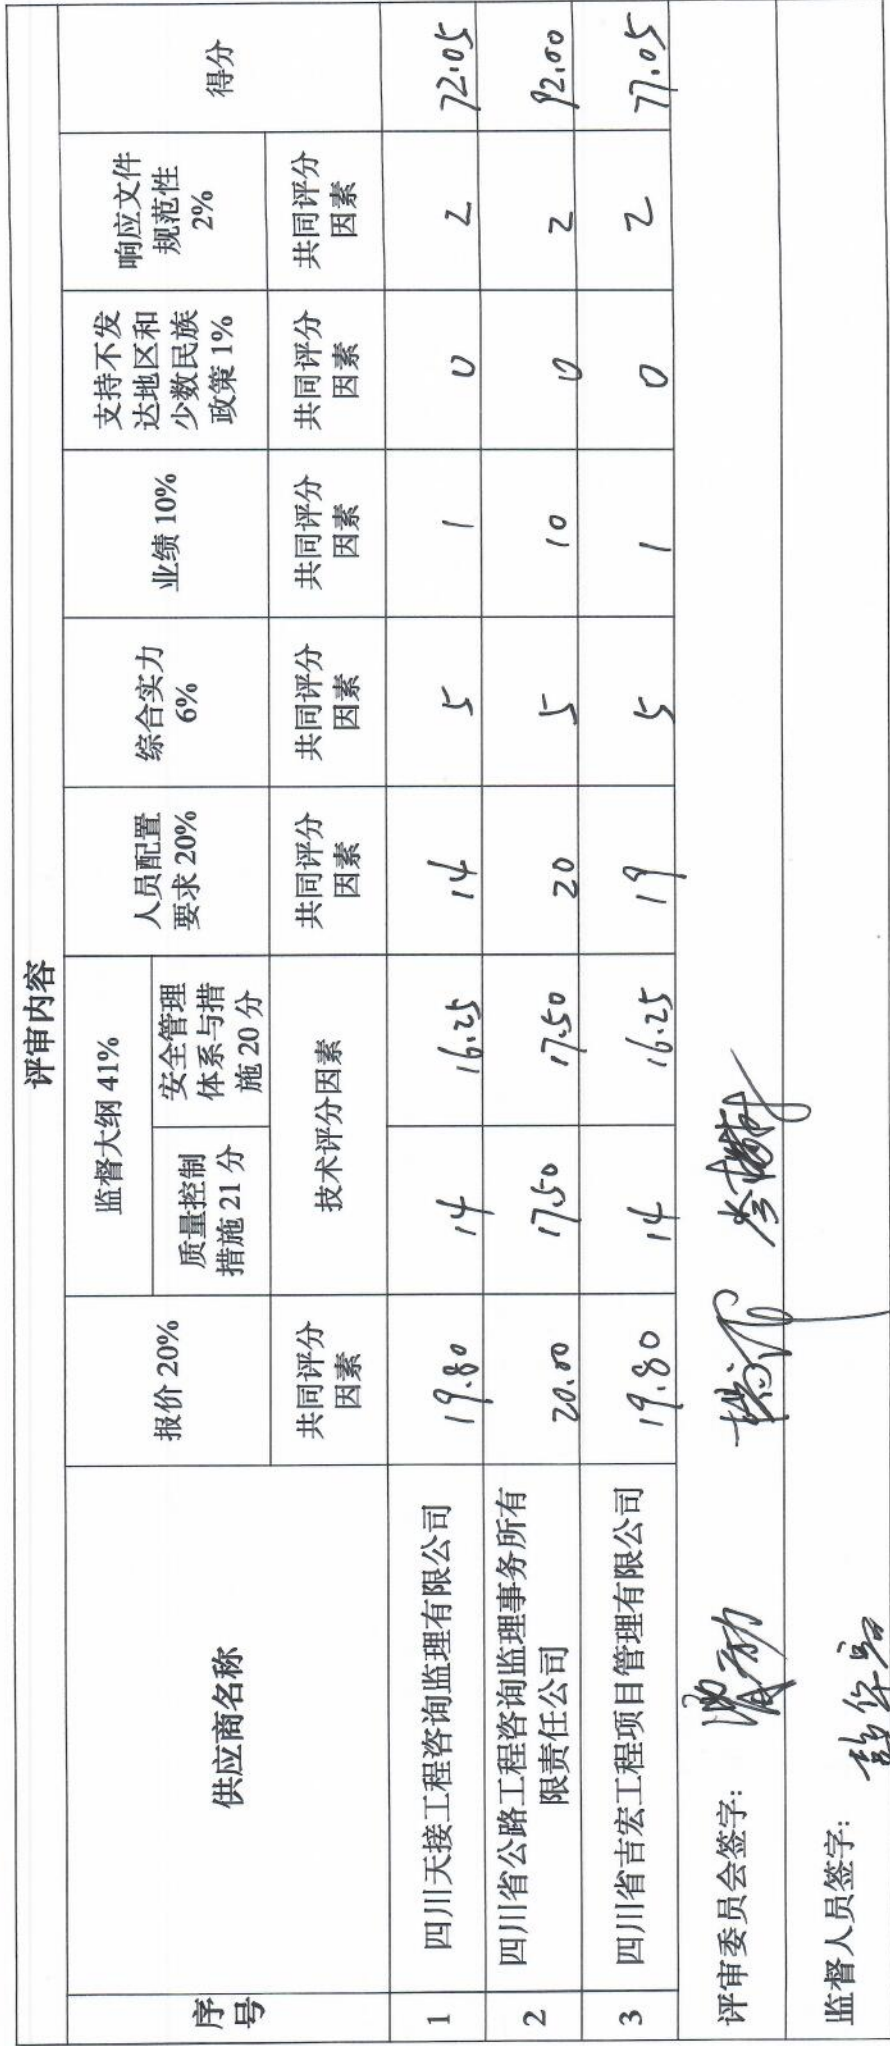 评审内容
序号
供应商名称
报价 20%
监督大纲 41%
人员配置
要求 20%
综合实力
6%
业绩 10%
支持不发
达地区和
少数民族
政策 1%
响应文件
规范性
2%
得分
质量控制
措施 21 分
安全管理
体系与措
施 20 分
共同评分
因素
技术评分因素
共同评分
因素
共同评分
因素
共同评分
因素
共同评分
因素
共同评分
因素
1 四川天接工程咨询监理有限公司 19.80 14 16.25 14 5 1 0 2 72.05
2 四川省公路工程咨询监理事务所有
限责任公司 20.00 17.50 17.50 20 5 10 0 2 92.00
3 四川省吉宏工程项目管理有限公司 19.80 14 16.25 19 5 1 0 2 77.05
评审委员会签字:
监督人员签字: